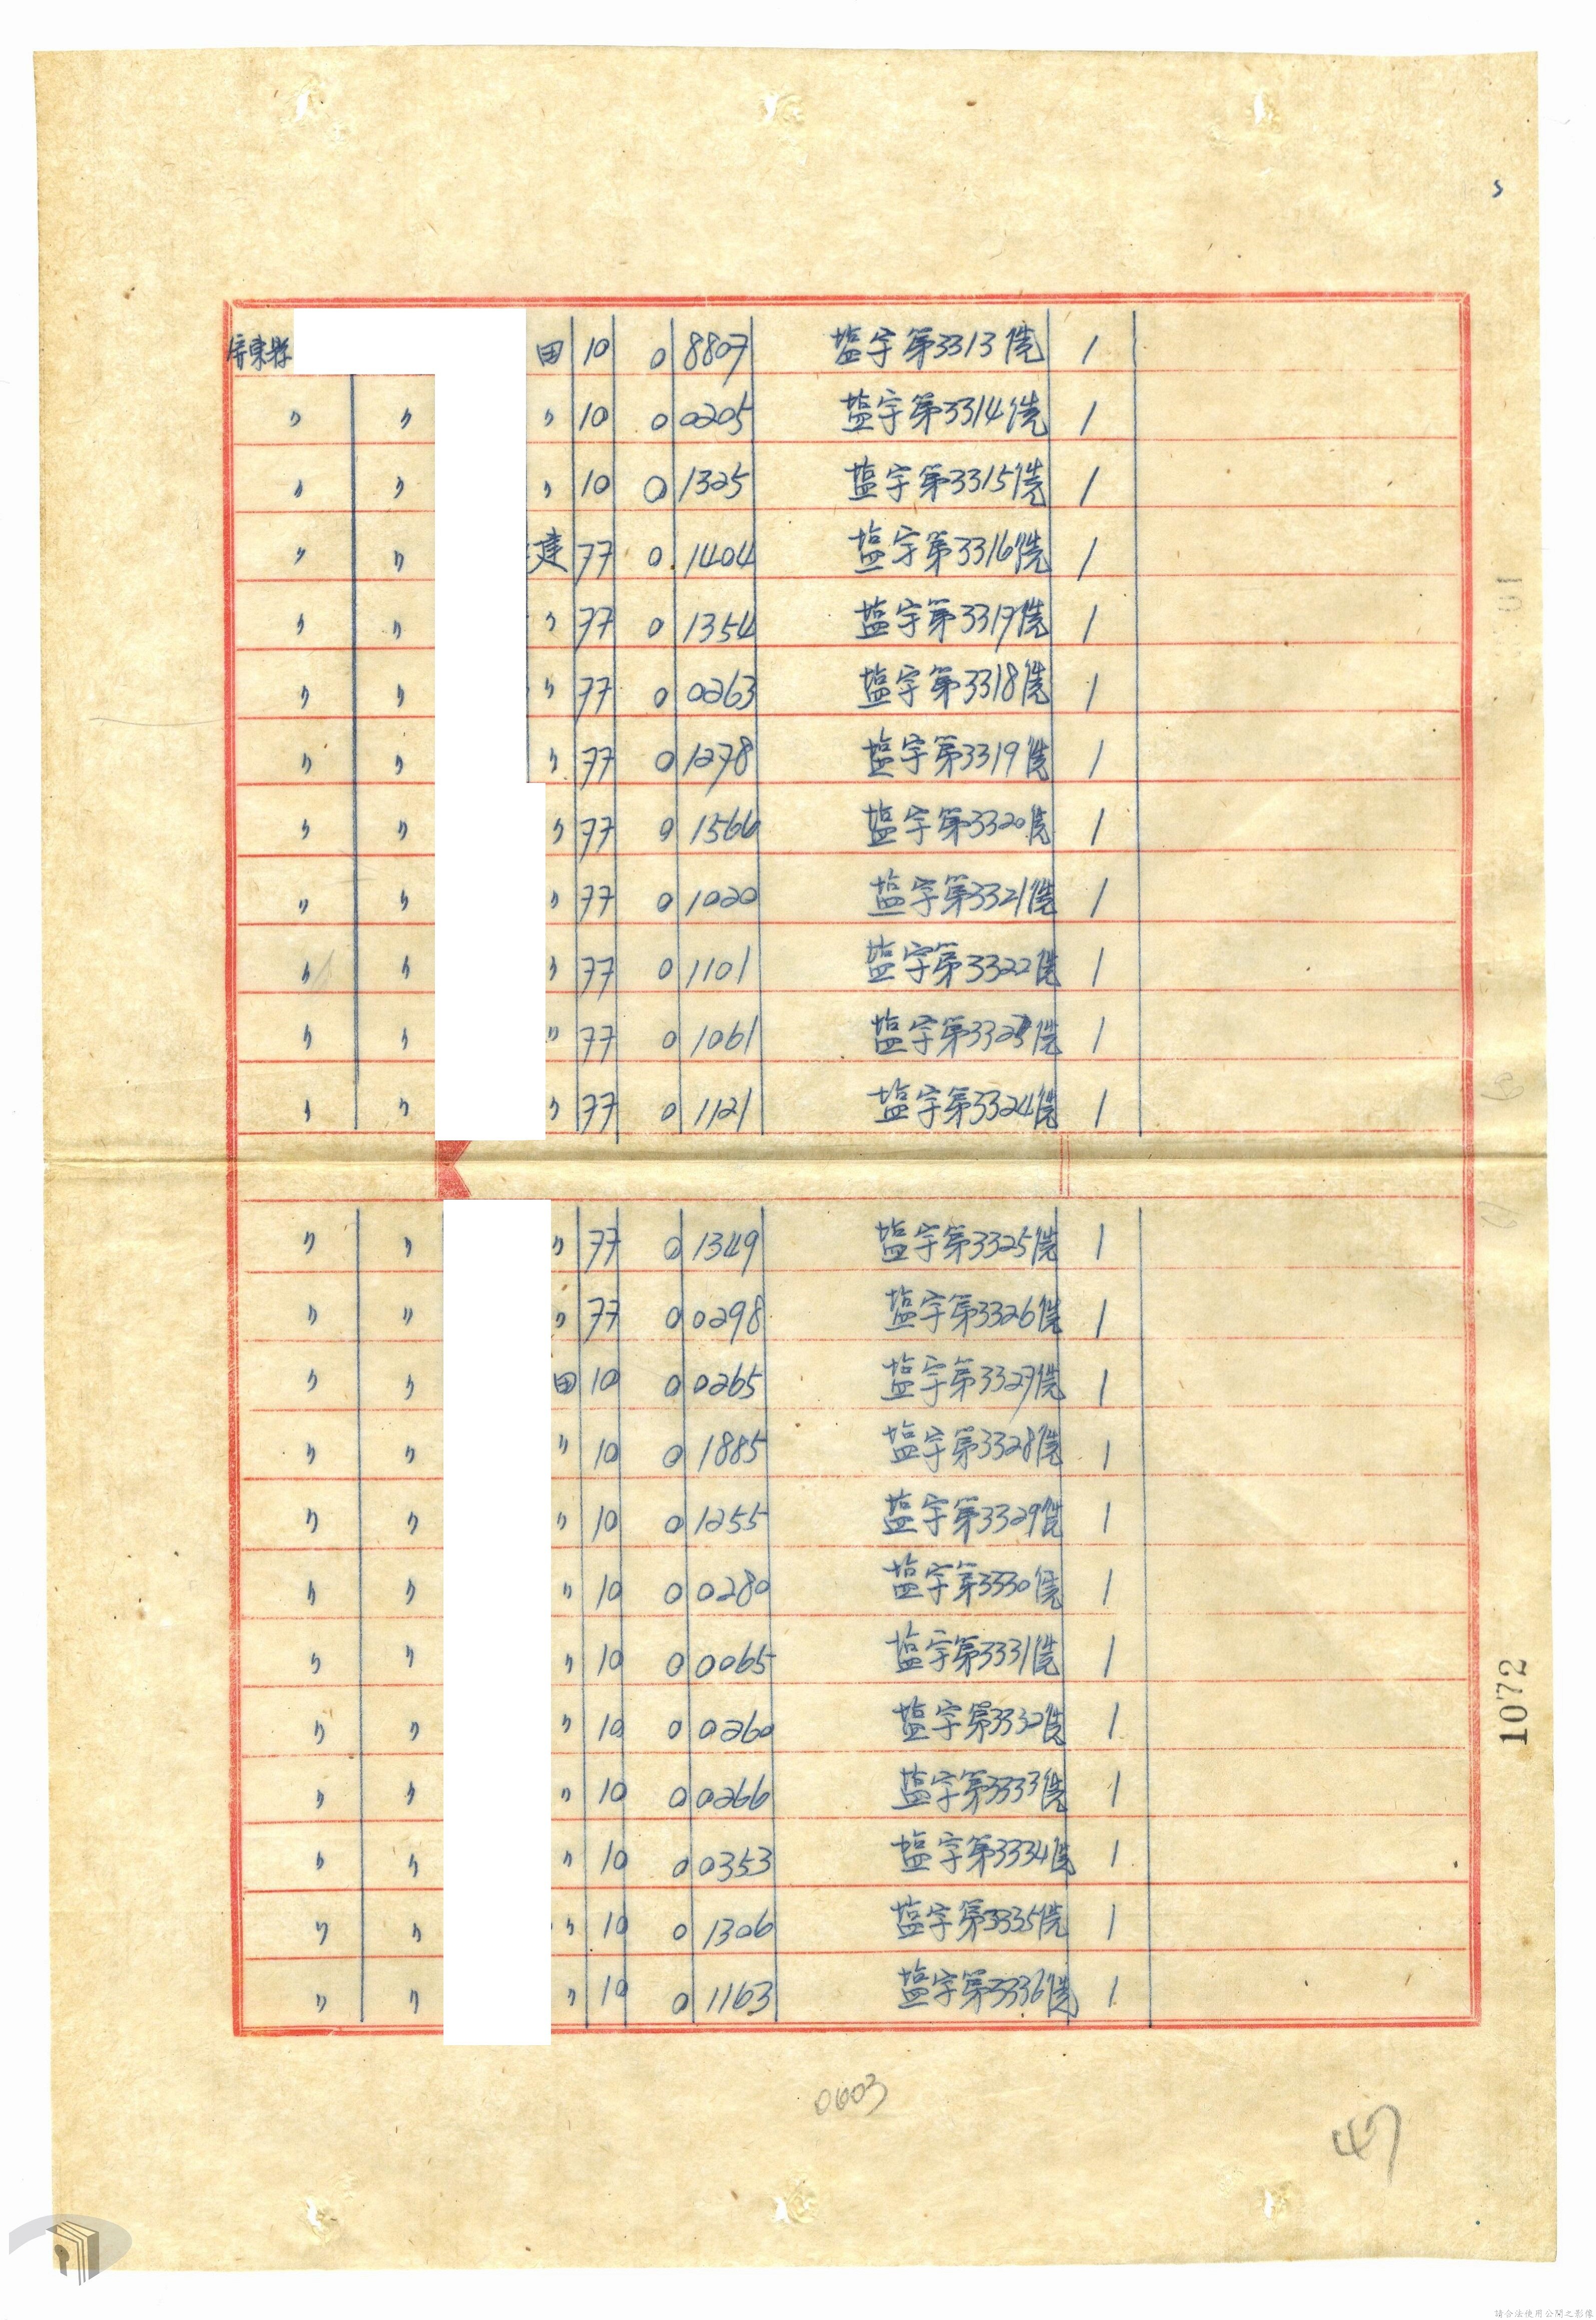 屏東縣 田 10 0 8807 塩字第3313號 1
〃 〃 〃 10 0 0205 塩字第3314號 1
〃 〃 〃 10 0 1325 塩字第3315號 1
〃 〃 建 77 0 1404 塩字第3316號 1
〃 〃 〃 77 0 1354 塩字第3317號 1
〃 〃 〃 77 0 0263 塩字第3318號 1
〃 〃 〃 77 0 1278 塩字第3319號 1
〃 〃 〃 77 0 1566 塩字第3320號 1
〃 〃 〃 77 0 1020 塩字第3321號 1
〃 〃 〃 77 0 1101 塩字第3322號 1
〃 〃 〃 77 0 1061 塩字第3323號 1
〃 〃 〃 77 0 1121 塩字第3324號 1
〃 〃 〃 77 0 1349 塩字第3325號 1
〃 〃 〃 77 0 0298 塩字第3326號 1
〃 〃 田 10 0 0265 塩字第3327號 1
〃 〃 〃 10 0 1885 塩字第3328號 1
〃 〃 〃 10 0 1255 塩字第3329號 1
〃 〃 〃 10 0 0280 塩字第3330號 1
〃 〃 〃 10 0 0065 塩字第3331號 1
〃 〃 〃 10 0 0260 塩字第3332號 1
〃 〃 〃 10 0 0266 塩字第3333號 1
〃 〃 〃 10 0 0353 塩字第3334號 1
〃 〃 〃 10 0 1306 塩字第3335號 1
〃 〃 〃 10 0 1163 塩字第3336號 1
1072
0603
47
請合法使用公開之影像